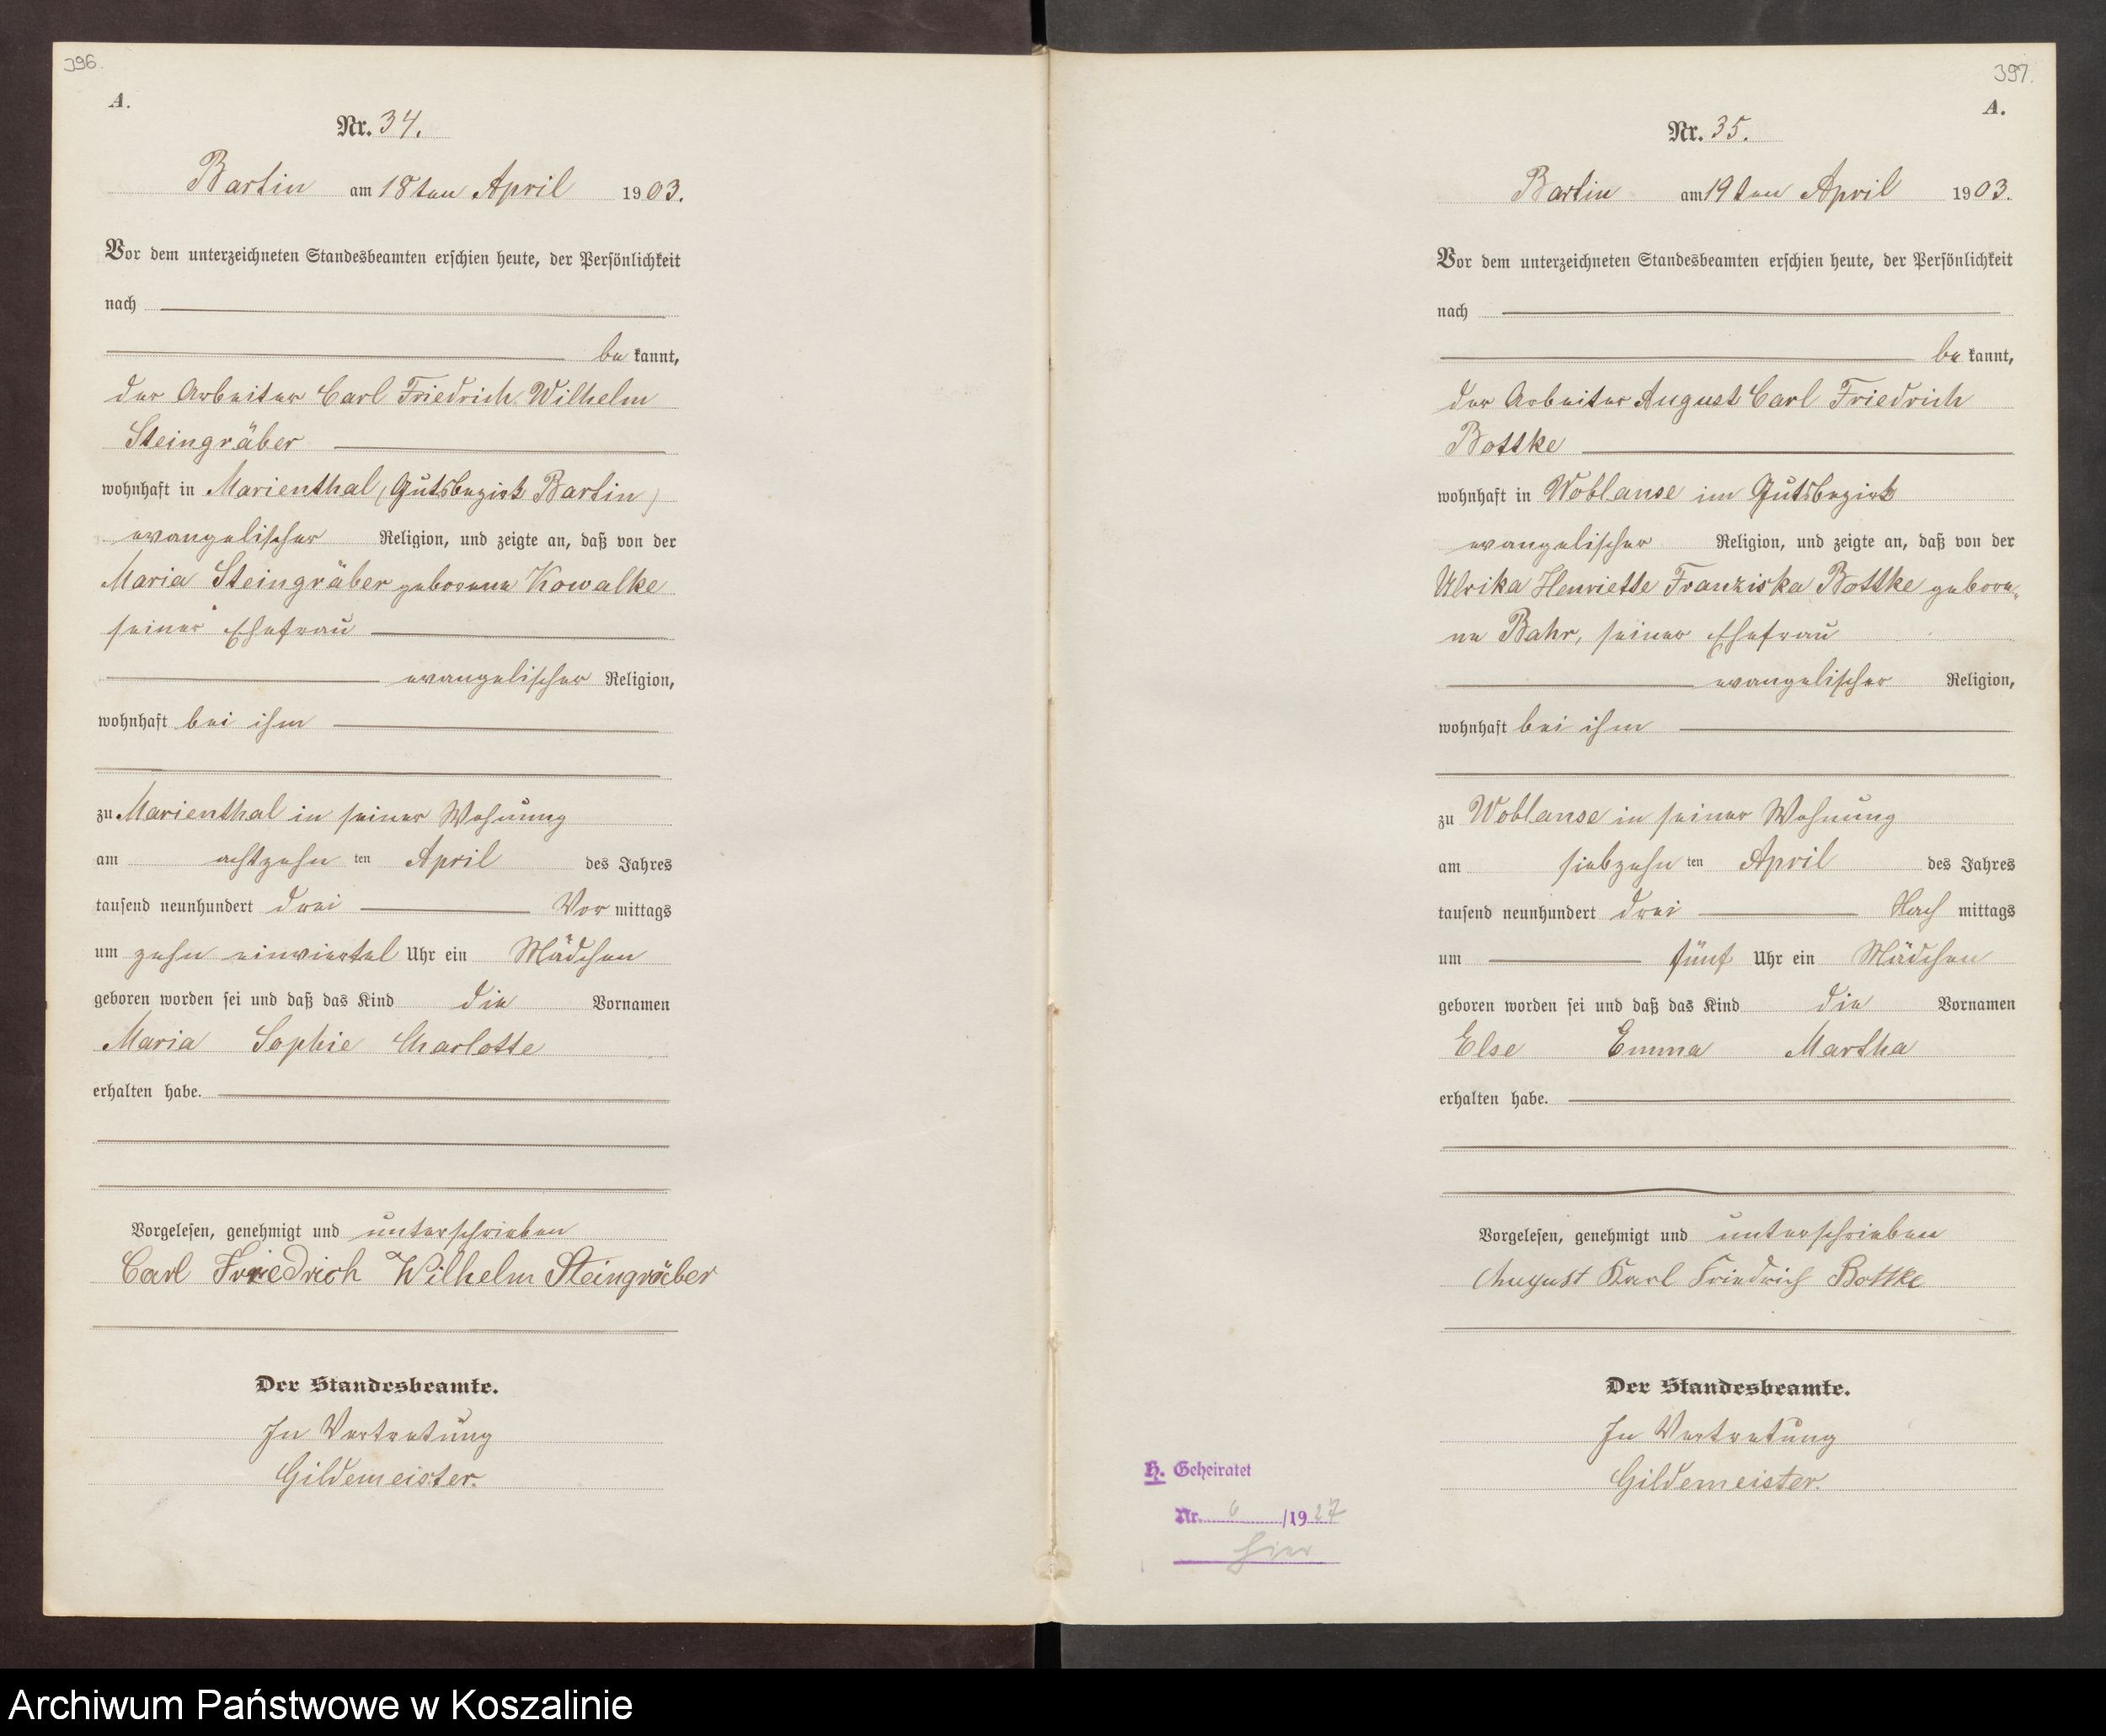 396.
A.
Nr. 34.
Bartin am 18ten April 1903.
Vor dem unterzeichneten Standesbeamten erschien heute, der Persönlichkeit
nach
be kannt,
der Arbeiter Carl Friedrich Wilhelm
Steingräber
wohnhaft in Marienthal (Gutsbezirk Bartin)
evangelischer Religion, und zeigte an, daß von der
Maria Steingräber geborene Kowalke
seiner Ehefrau
evangelischer Religion,
wohnhaft bei ihm
zu Marienthal in seiner Wohnung
am achtzehn ten April des Jahres
tausend neunhundert drei Vor mittags
um zehn einviertel Uhr ein Mädchen
geboren worden sei und daß das Kind die Vornamen
Maria Sophie Charlotte
erhalten habe.
Vorgelesen, genehmigt und unterschrieben
Carl Friedrich Wilhelm Steingräber
Der Standesbeamte.
In Vertretung
Gildemeister.
397.
A.
Nr. 35.
Bartin am 19ten April 1903.
Vor dem unterzeichneten Standesbeamten erschien heute, der Persönlichkeit
nach
be kannt,
der Arbeiter August Carl Friedrich
Bottke
wohnhaft in Woblanse im Gutsbezirk
evangelischer Religion, und zeigte an, daß von der
Ulrika Henriette Franziska Bottke gebore-
ne Bahr, seiner Ehefrau
evangelischer Religion,
wohnhaft bei ihm
zu Woblanse in seiner Wohnung
am siebzehn ten April des Jahres
tausend neunhundert drei Nach mittags
um fünf Uhr ein Mädchen
geboren worden sei und daß das Kind die Vornamen
Else Emma Martha
erhalten habe.
Vorgelesen, genehmigt und unterschrieben
August Karl Friedrich Bottke
Der Standesbeamte.
In Vertretung
Gildemeister.
H. Geheiratet
Nr. 6 /1927
hier
Archiwum Państwowe w Koszalinie